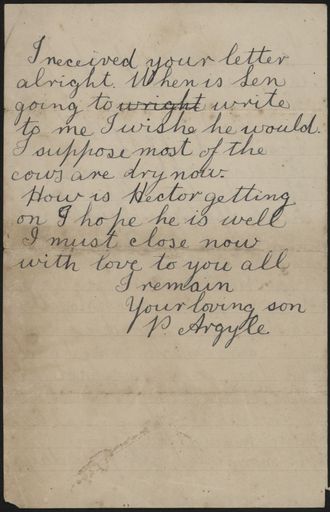 I received your letter
alright. When is Len
going to wright write
to me I wishe he would.
I suppose most of the
cows are dry now.
How is Hector getting
on I hope he is well
I must close now
with love to you all
I remain
Your loving son
P. Argyle